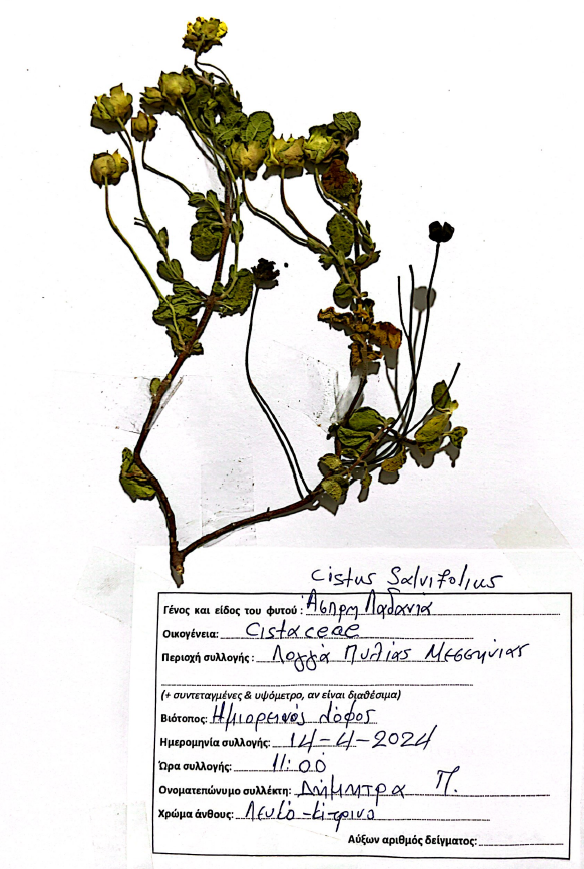 Cistus Salvifolius
Γένος και είδος του φυτού: Άσπρη Λαδανιά
Οικογένεια: Cistaceae
Περιοχή συλλογής: Λογγά Πυλίας Μεσσηνίας
(+ συντεταγμένες & υψόμετρο, αν είναι διαθέσιμα)
Βιότοπος: Ημιορεινός λόφος
Ημερομηνία συλλογής: 14-4-2024
Ώρα συλλογής: 11:00
Ονοματεπώνυμο συλλέκτη: Δήμητρα Π.
Χρώμα άνθους: Λευκό-κίτρινο
Αύξων αριθμός δείγματος: